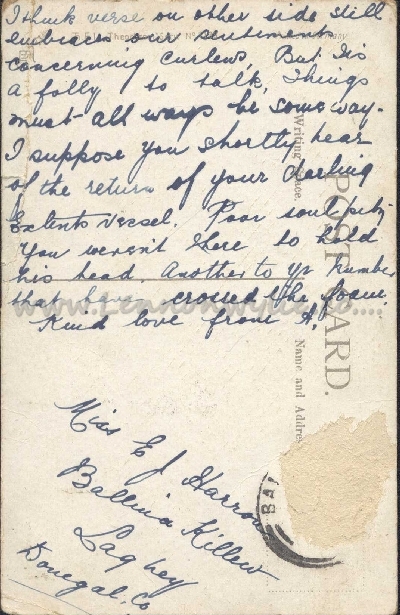 I think verse on other side still
embraces our sentiments
concerning curlews, But its
a folly to talk, Things
must all ways be some way.
I suppose you shortly hear
of the return of your darling
vessel. Poor soul pity
You weren't there to hold
his head. Another to yr number
that have crossed the foam.
Kind love from A.
POST CARD.
Writing Space.
Name and Address
Miss E J
Ballina Killew
Laghey
Donegal. Co
BA